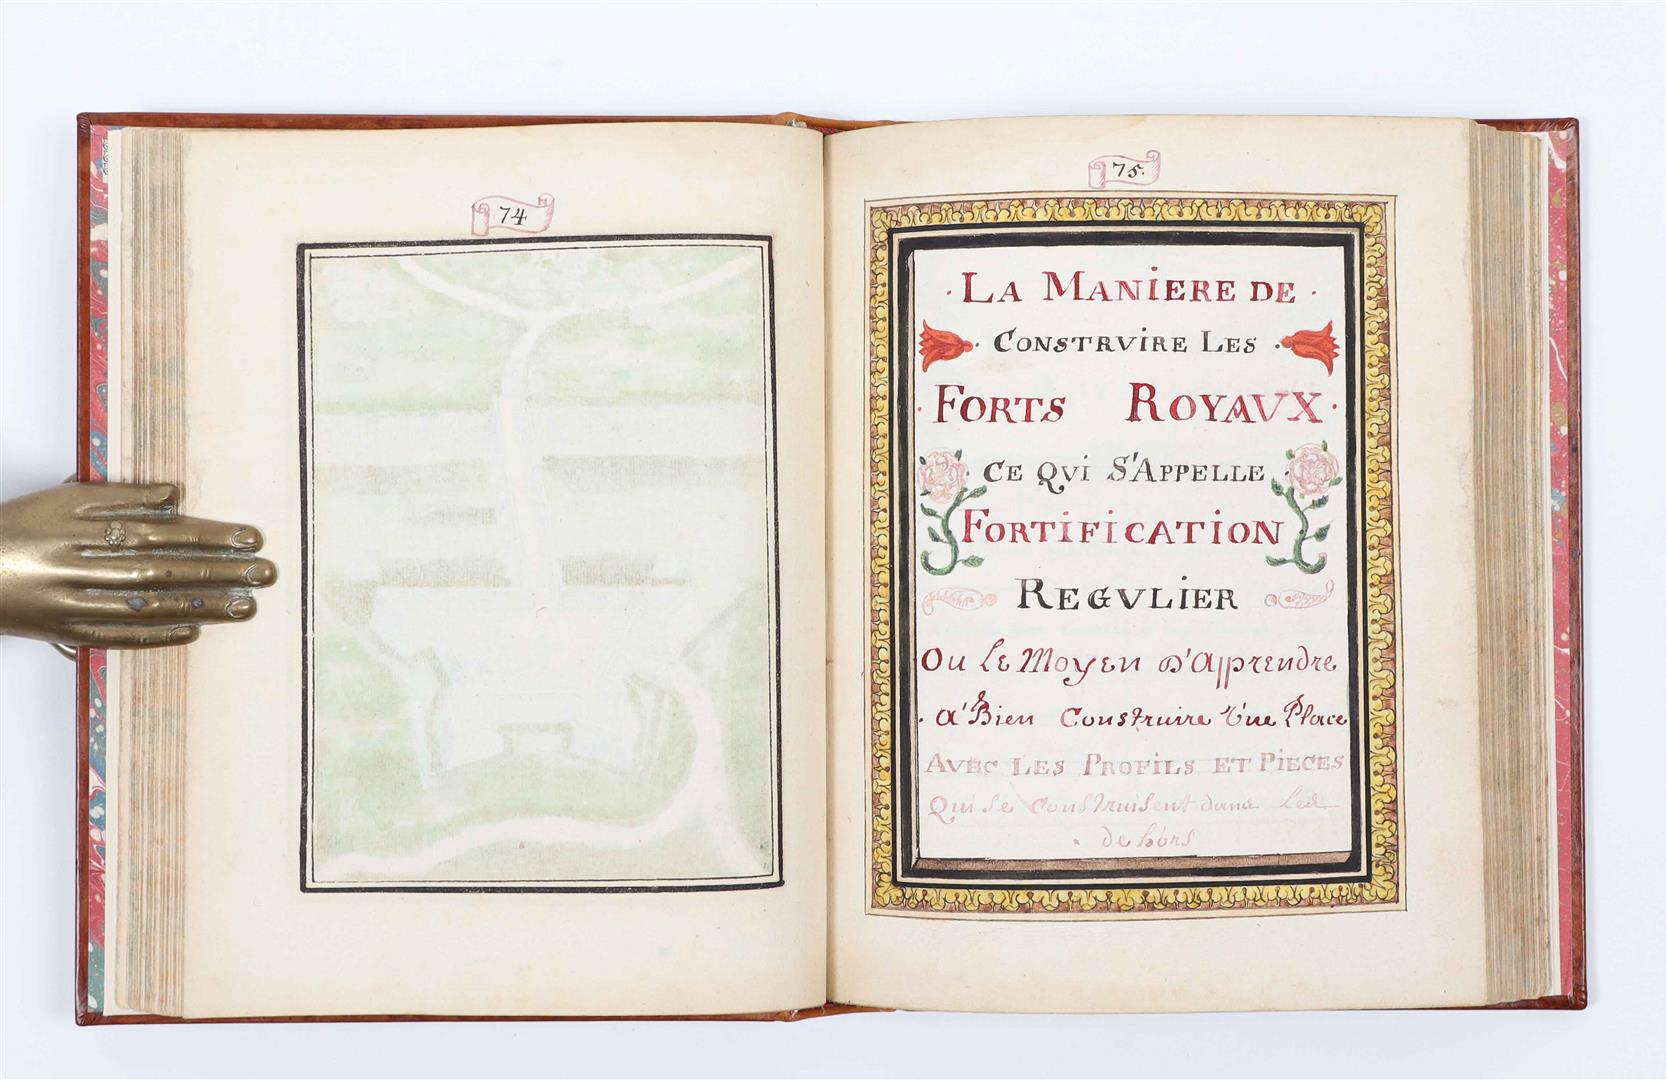 74
75.
· LA MANIERE DE ·
· CONSTRVIRE LES ·
· FORTS ROYAVX ·
· CE QVI S'APPELLE ·
FORTIFICATION
REGVLIER
Ou Le Moyen D'Apprendre
· A' Bien Construire Vne Place
AVEC LES PROFILS ET PIECES
Qui Se Construisent dans Les
· de hors